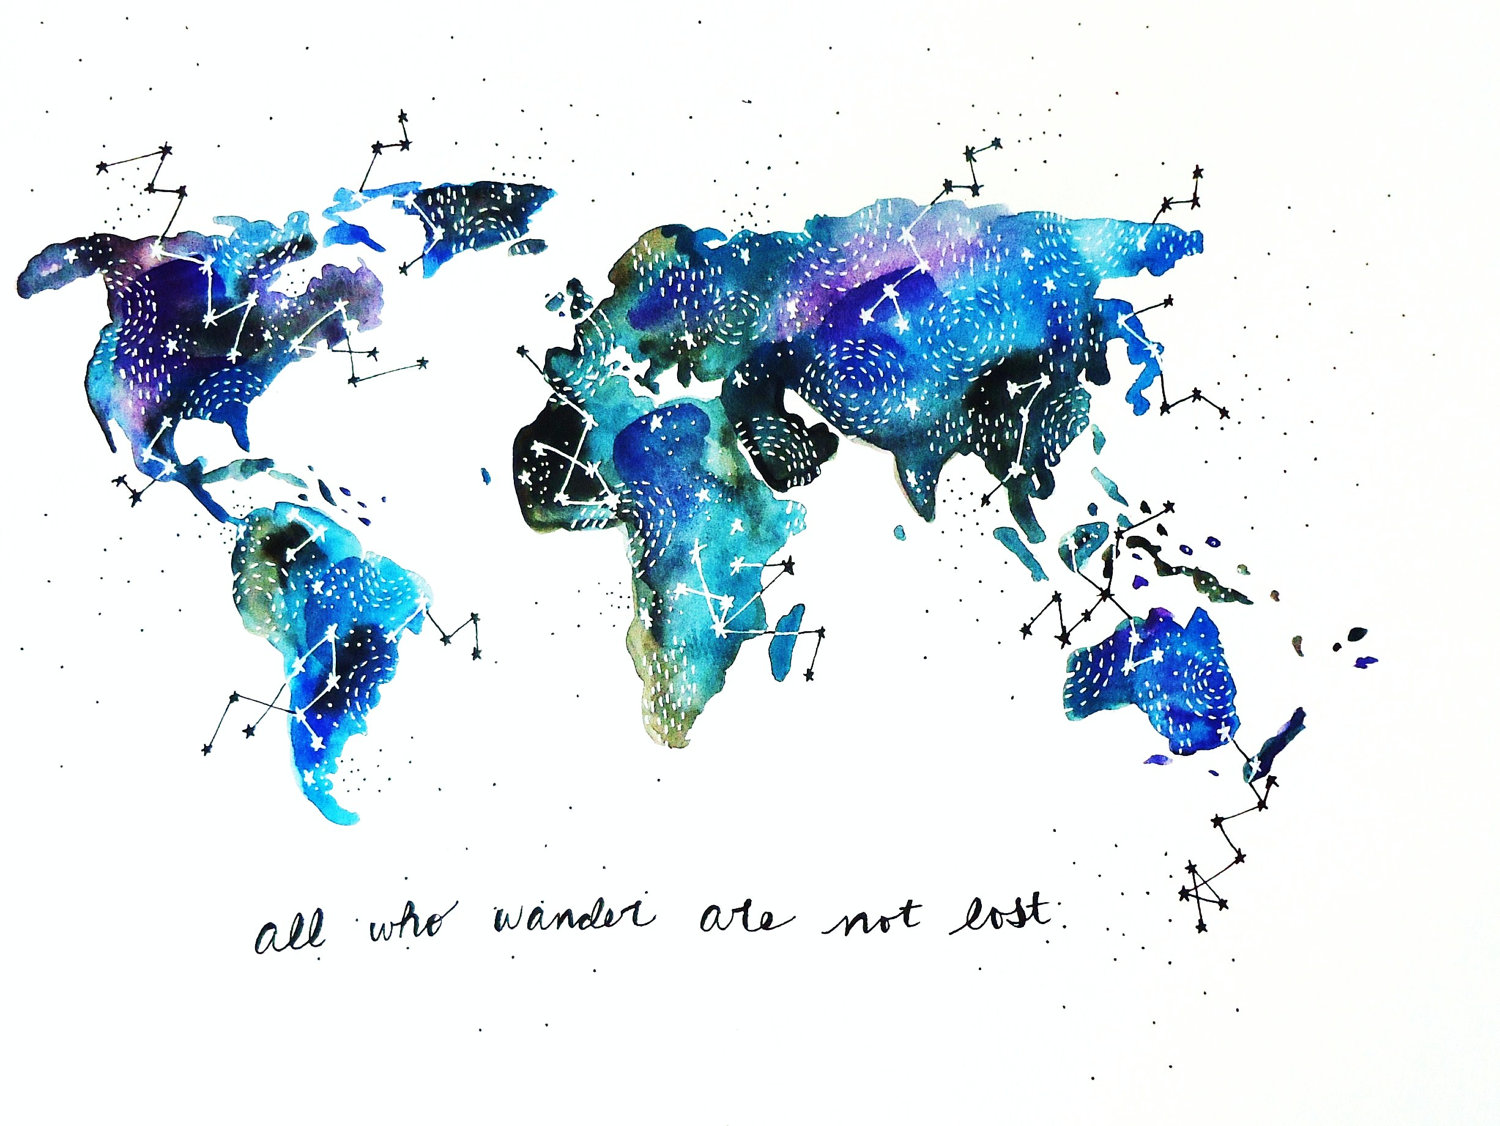 all who wander are not lost